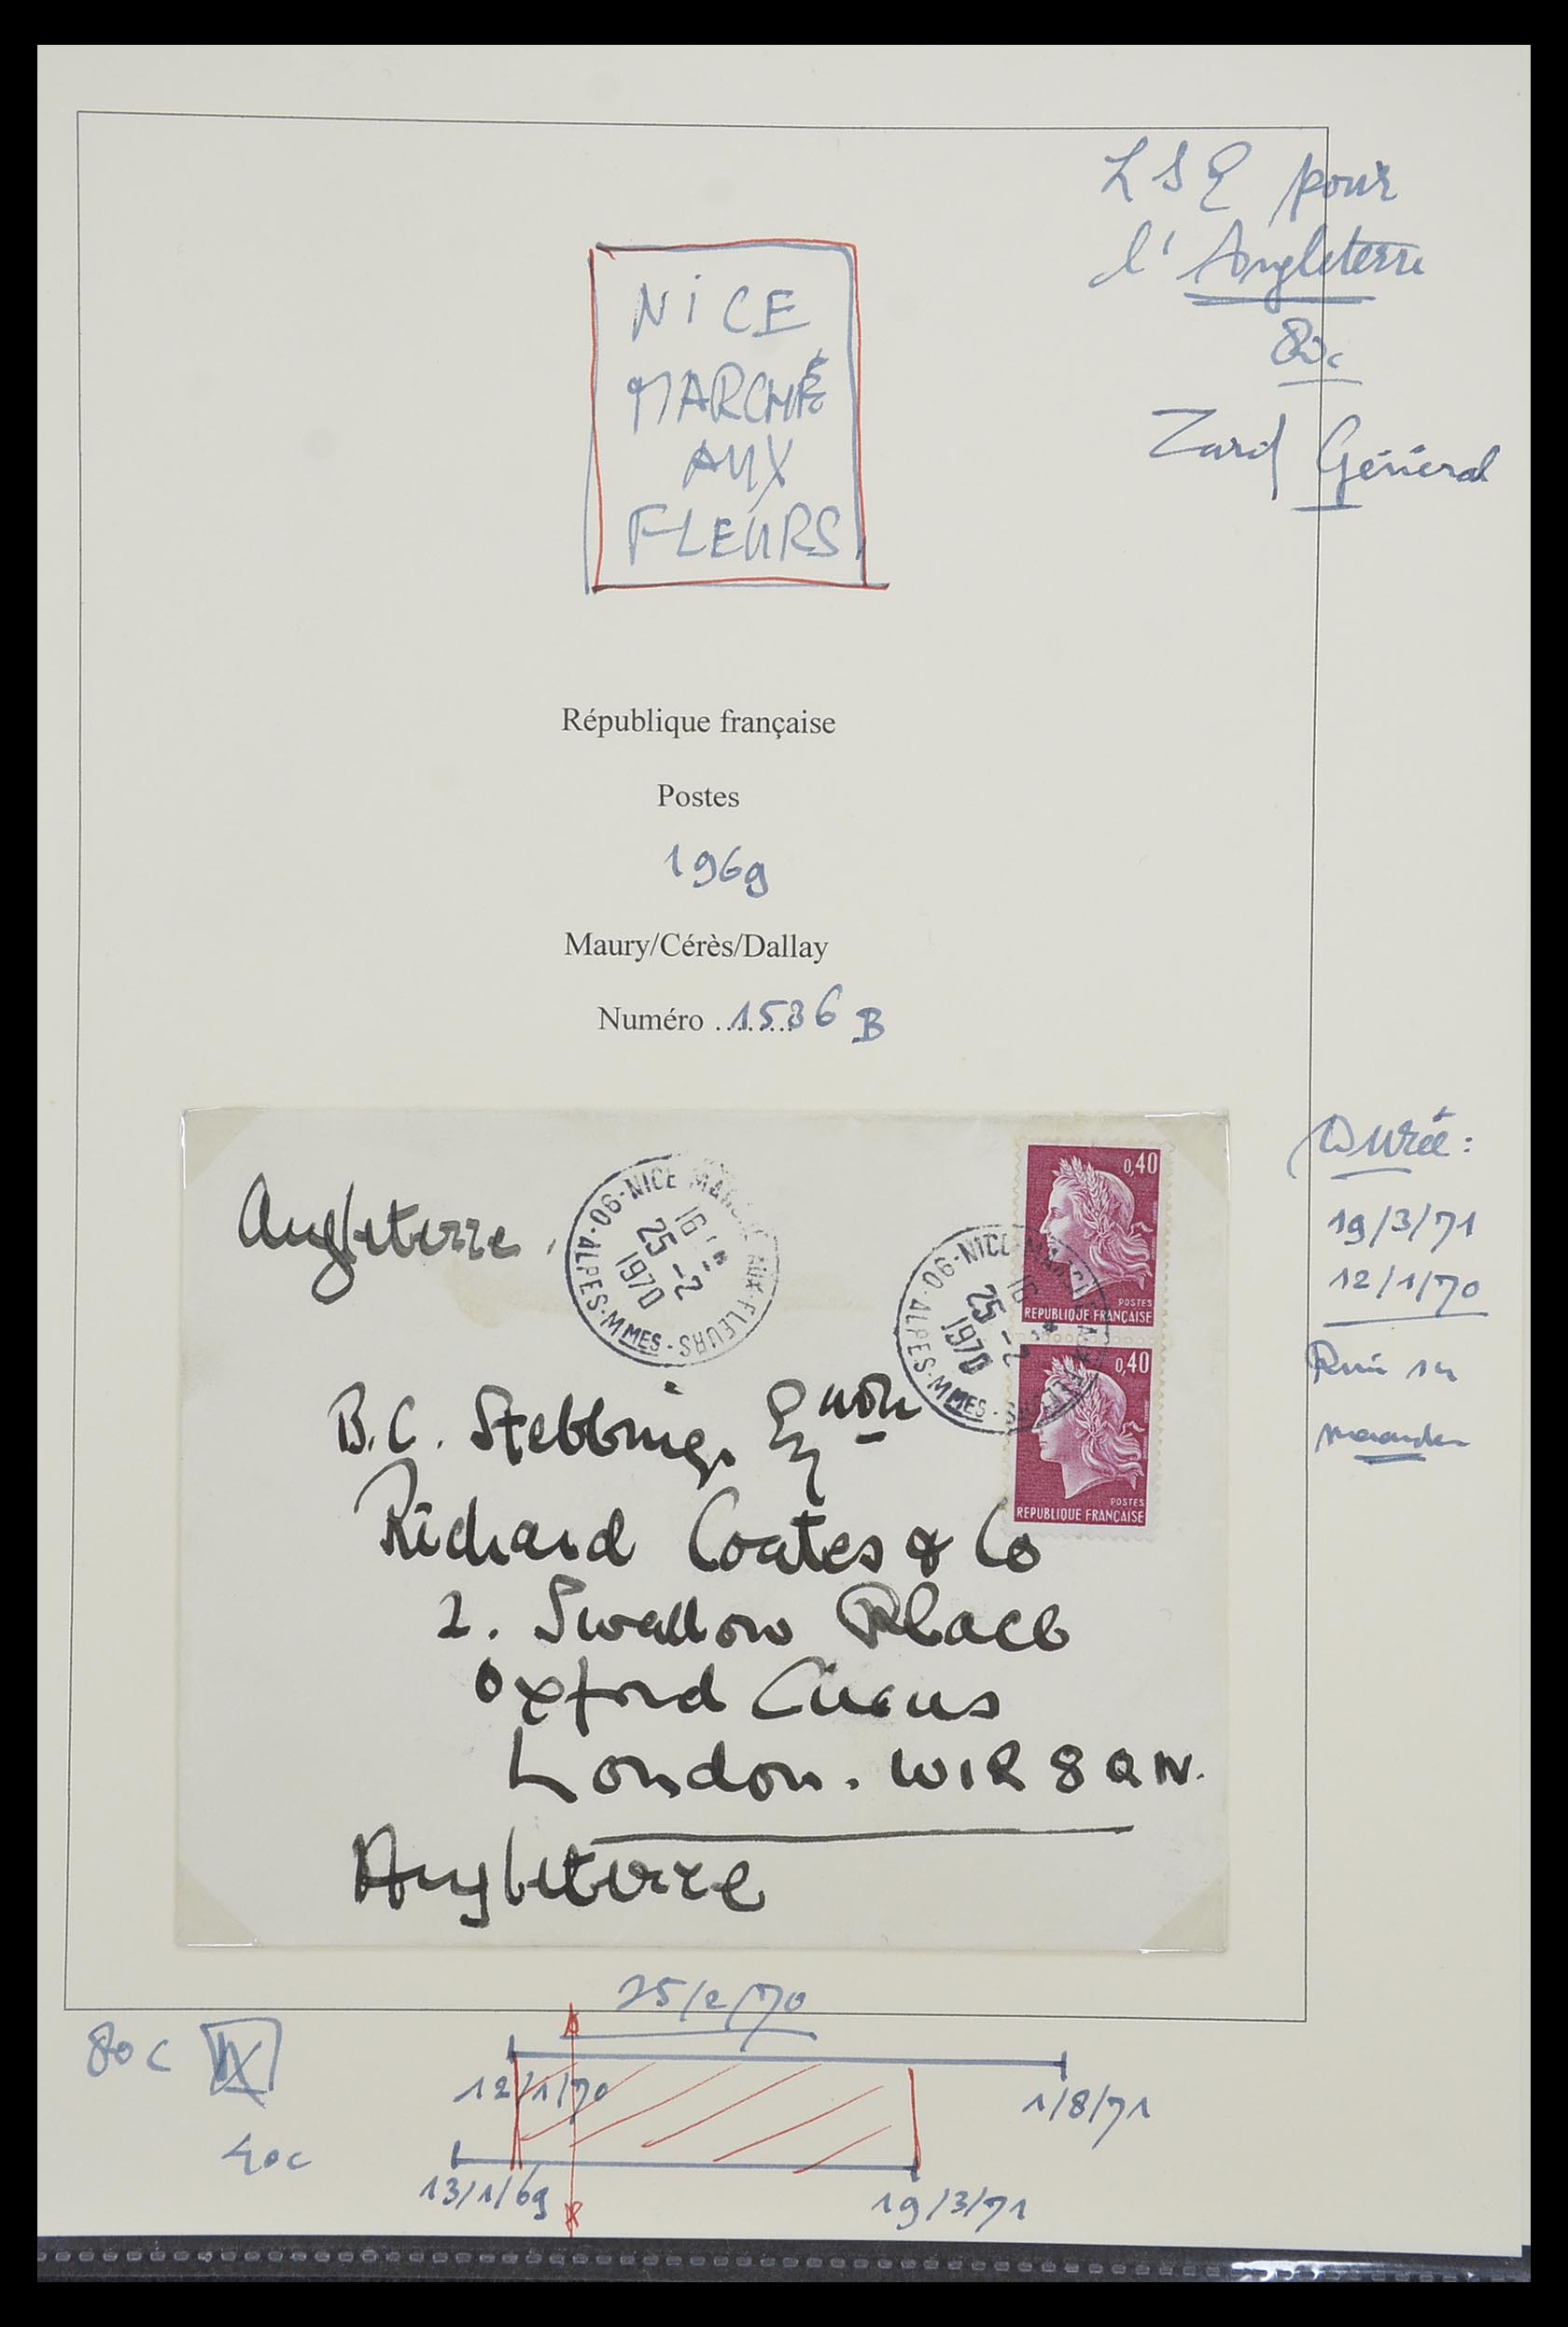 LSE pour
l'Angleterre
80c
Tarif Général
NiCE
MARCHÉ
AUX
FLEURS
République française
Postes
1969
Maury/Cérès/Dallay
Numéro ........1536 B
Angleterre.
06-NICE MARCHE AUX-FLEURS
ALPES-MMES
16
25-2
1970
0,40
POSTES
REPUBLIQUE FRANÇAISE
06-NICE-MARCHE AUX FLEURS
ALPES-MMES
16
25-2
1970
0,40
POSTES
REPUBLIQUE FRANÇAISE
B.C. Stebbings
Richard Coates & Co
2. Swallow Place
Oxford Circus
London. W1R 8QN.
Angleterre
Durée :
19/3/71
12/1/70
25/2/70
80c
12/1/70
1/8/71
40c
13/1/69
19/3/71